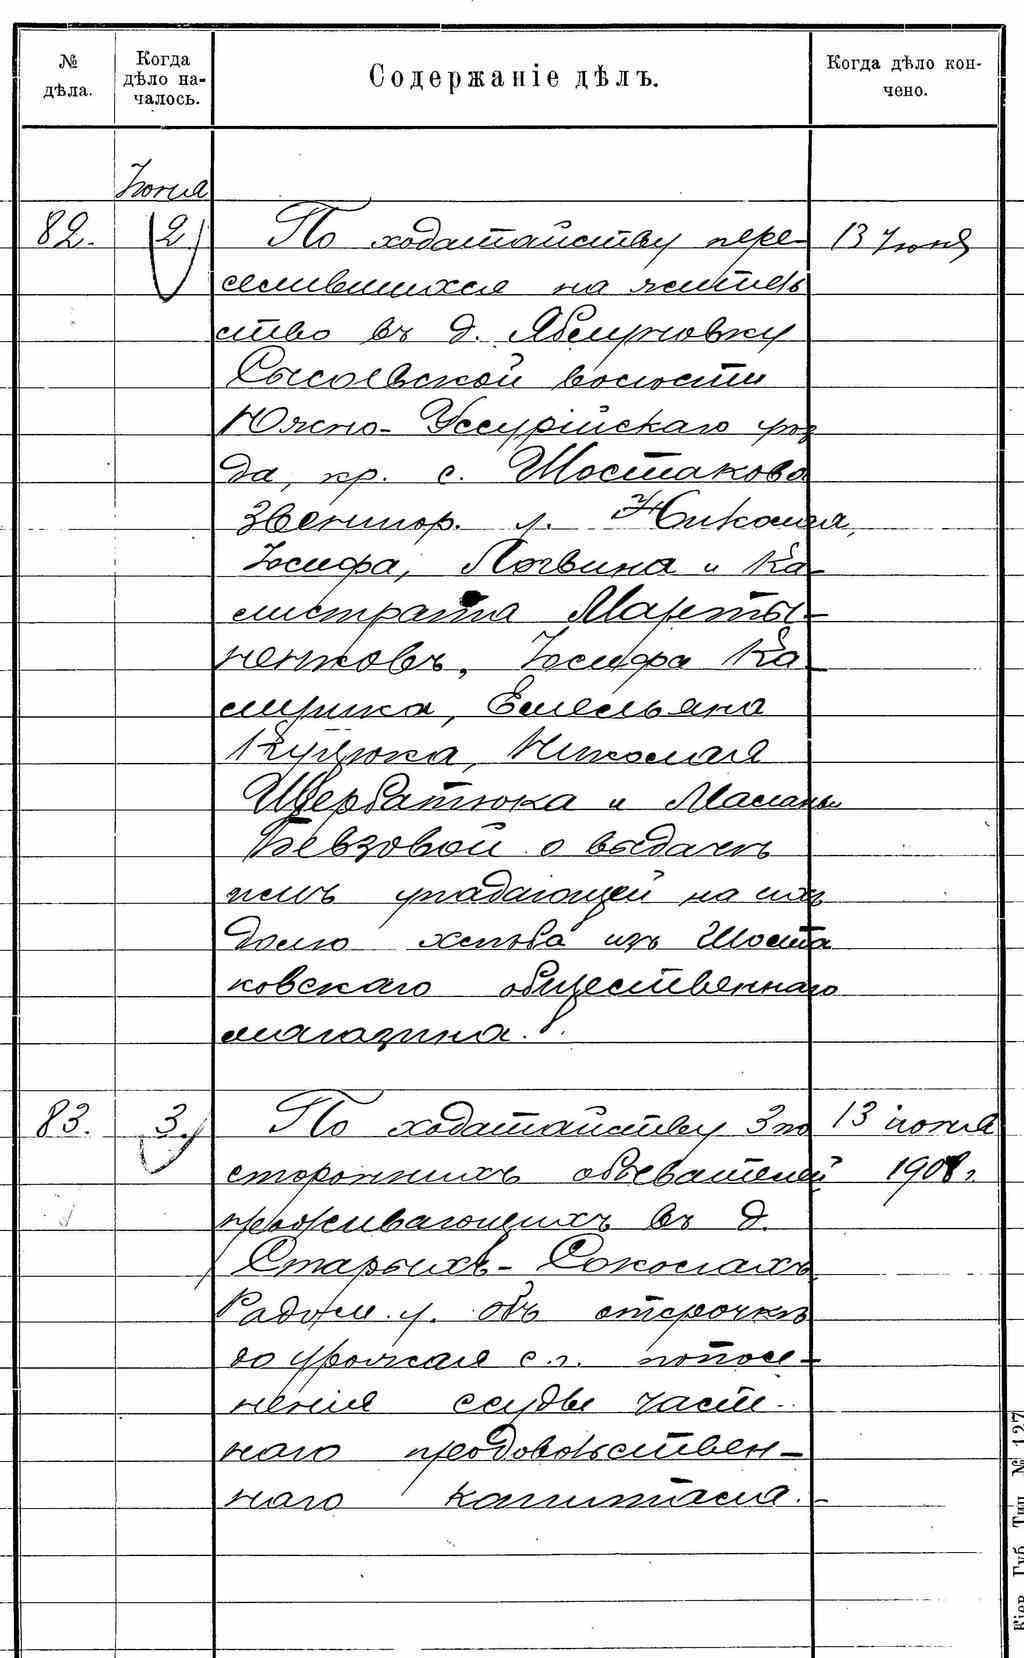 № дѣла.
Когда дѣло на-чалось.
Содержаніе дѣлъ.
Когда дѣло кон-чено.
Іюня
82. 2 По ходатайству пере- 13 Іюня
селившихся на житель
ство въ д. Яблуновку
Сысоевской волости
Южно-Уссурійскаго уѣз
да, кр. с. Шостакова
Звенигор. у. Николая,
Іосифа, Логвина и Ка-
листрата Марты-
ненковъ, Іосифа Ка-
лирика, Емельяна
Куцюка, Николая
Щербатюка и Маланьи
Бевзовой о выдачѣ
имъ упадающей на ихъ
долю хлѣба изъ Шоста
ковскаго общественнаго
магазина.
83. 3. По ходатайству 3 по 13 іюня
стороннихъ обывателей 1908 г.
проживающихъ въ д.
Старыхъ-Соколахъ,
Радом. у. объ отсрочкѣ
до урожая с.г. попол-
ненія ссуды част-
наго продовольствен-
наго капитала.
Кіев. Губ. Тип. № 127